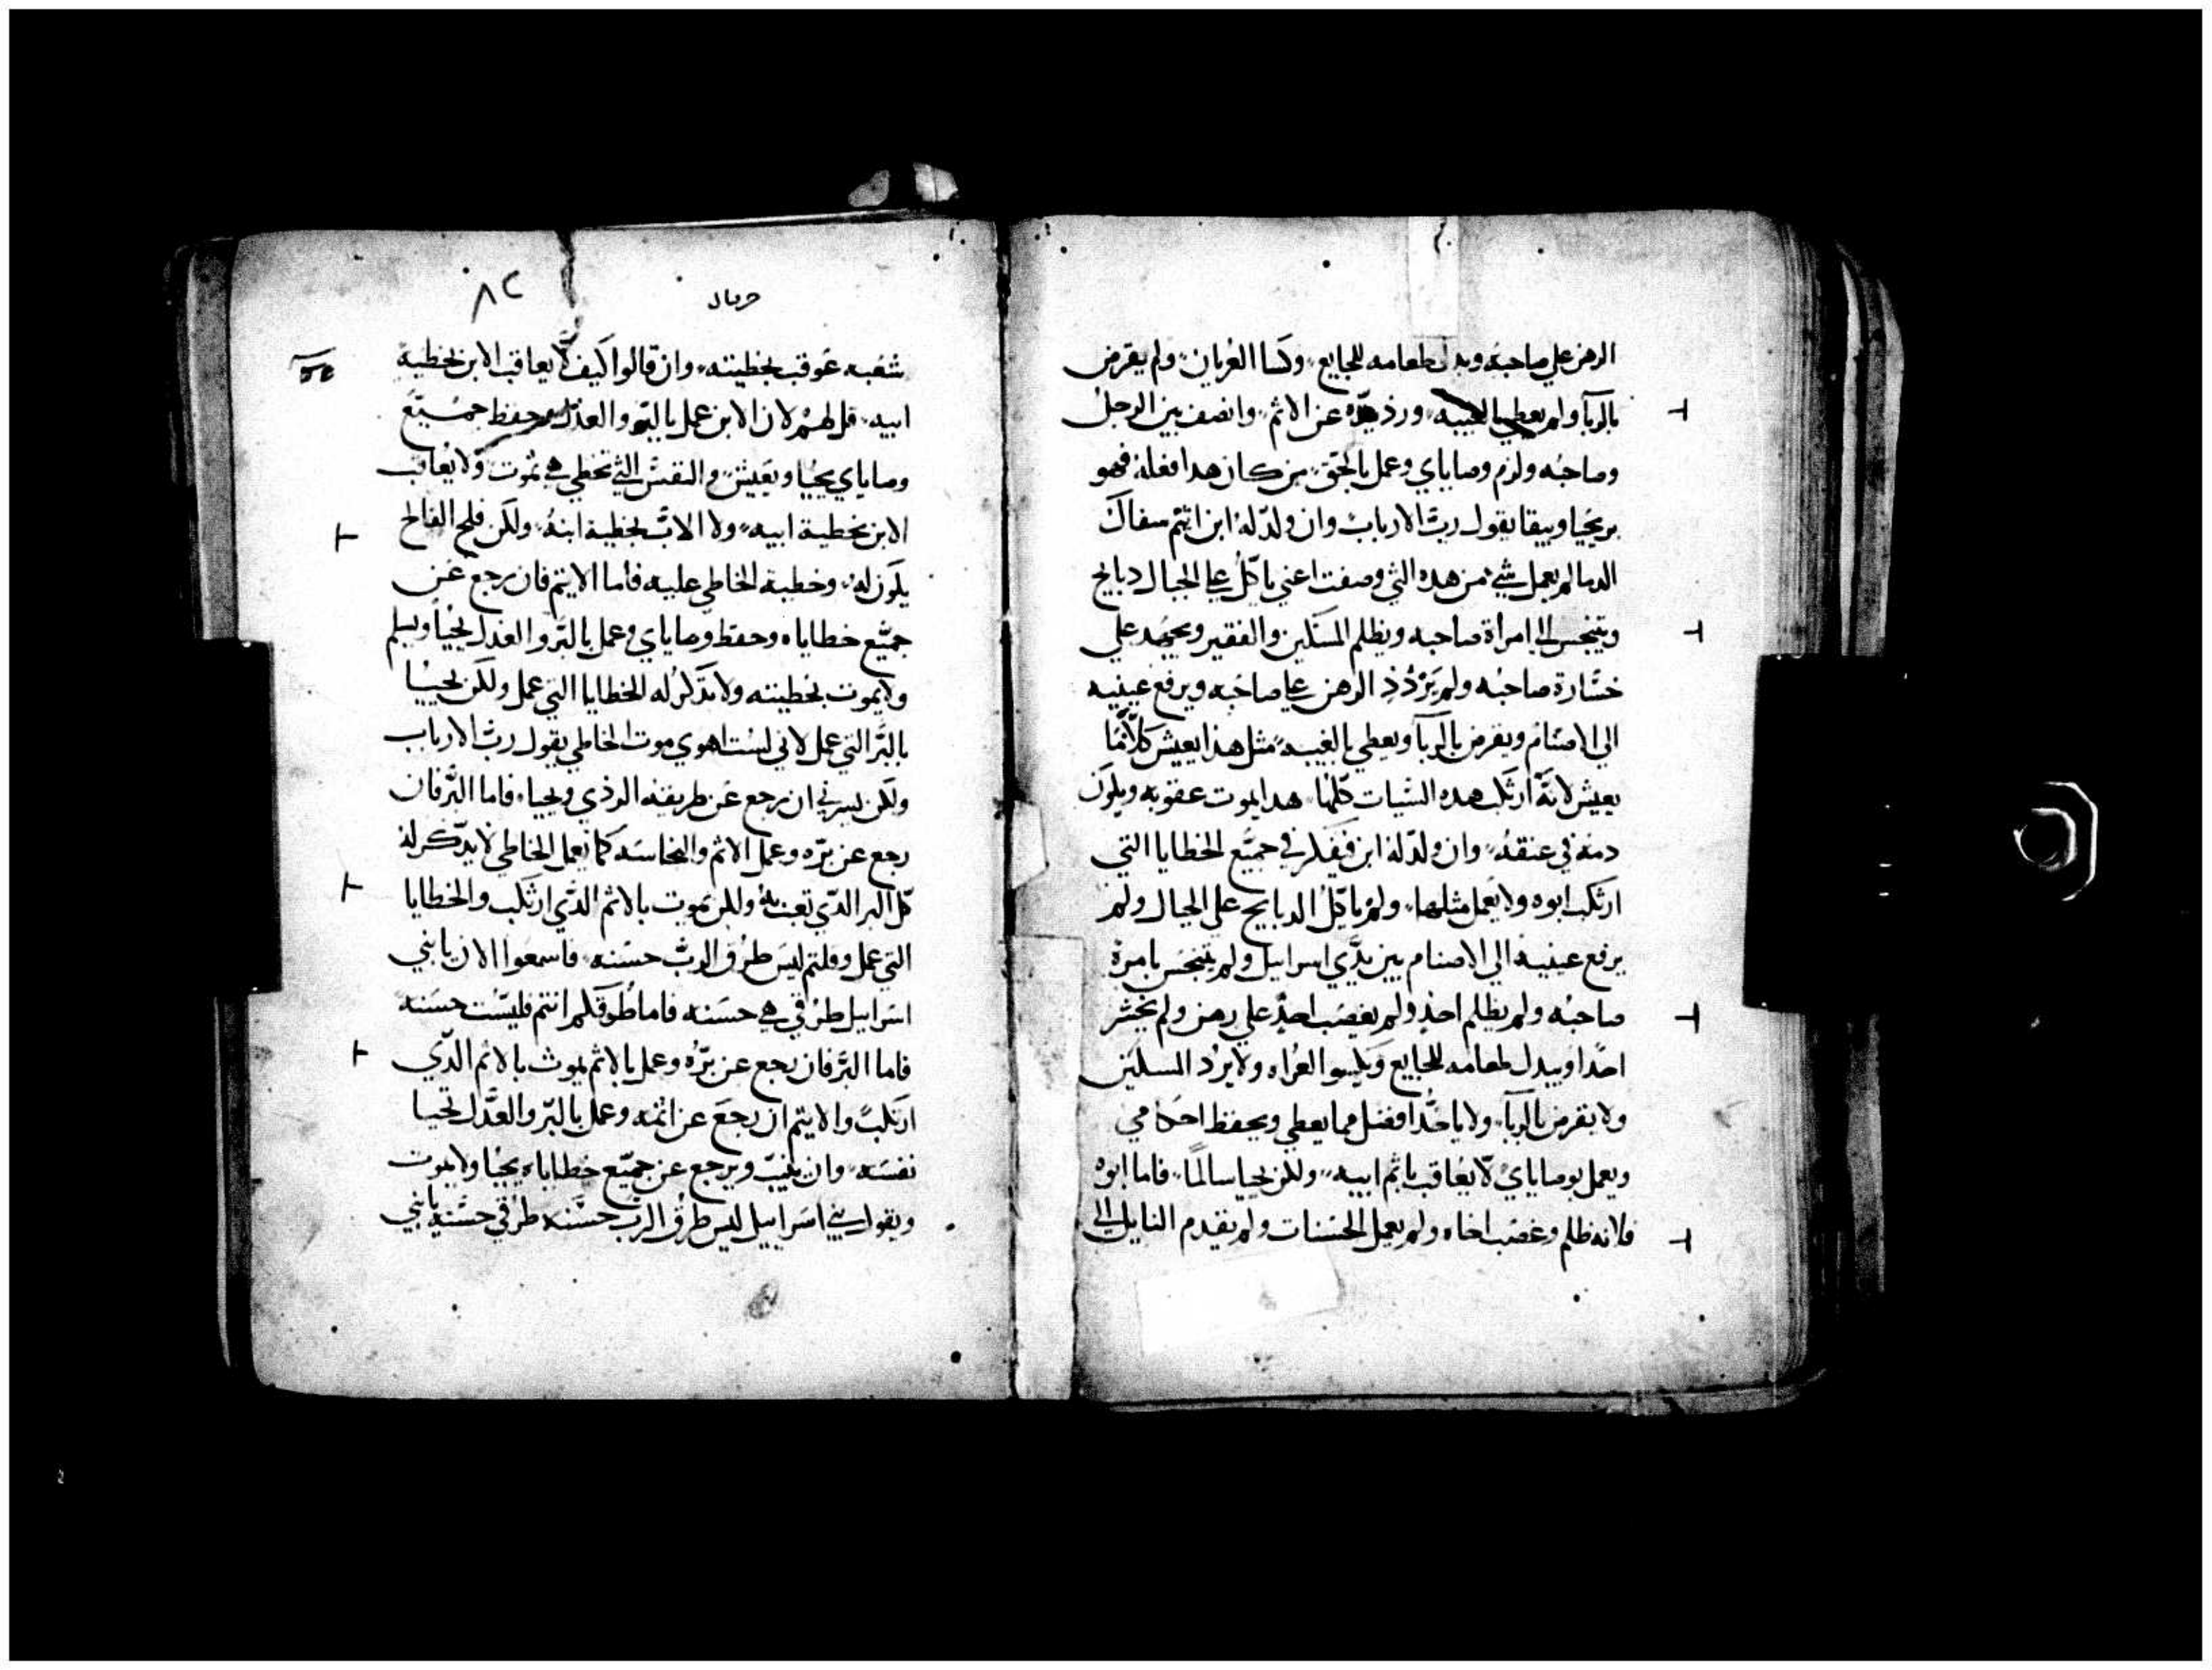 الرهن علي صاحبه وبدل طعامه للجايع وكسا العريان ولم يقرض
بالربا ولم يعطي بالغيبه ورد يده عن الاثم وانصف بين الرجل
وصاحبه ولزم وصاياي وعمل بالحق من كان هدا فعله فهو
بر يحيا ويبقا يقول رب الارباب وان ولد له ابن اثيم سفاك
الدما لم يعمل شي من هده التي وصفت اعني ياكل علي الجبال دبايح
ويتنجس الي امراة صاحبه ويظلم المسكين والفقير ويجهد علي
خسارة صاحبه ولم يردد الرهن علي صاحبه ويرفع عينيه
الي الاصنام ويقرض بالربا ويعطي بالغيبه مثل هذا يعيش كلا ما
يعيش لانه ارتكب هده السيات كلها هدا يموت عقوبه ويكون
دمه في عنقه وان ولد له ابن فيفكر في جميع الخطايا التي
ارتكب ابوه ولا يعمل مثلها ولم ياكل الدبايح علي الجبال ولم
يرفع عينيه الي الاصنام بين يدي اسرايل ولم يتنجس بامرة
صاحبه ولم يظلم احد ولم يغصب احد علي رهن ولم يخثر
احدا ويبدل طعامه للجايع ويلبسوا العراه ولا يرد المسكين
ولا يقرض بالربا ولا ياخد افضل مما يعطي ويحفظ احكامي
ويعمل بوصاياي لا يعاقب باثم ابيه ولكن يحيا سالما فاما ابوه
فلانه ظلم وغصب اخاه ولم يعمل الحسنات ولم يقدم النايل الي
٨٢
حزقيال
شعبه عوقب بخطيته وان قالوا كيف لا يعاقب الابن بخطية
ابيه قل لهم لان الابن عمل بالبر والعدل وحفظ جميع
وصاياي يحيا ويعيش والنفس التي تخطي هي تموت ولا يعاقب
الابن بخطية ابيه ولا الاب بخطية ابنه ولكن فلح الفالح
يكون له وخطية الخاطي عليه فاما الاثيم فان رجع عن
جميع خطاياه وحفظ وصاياي وعمل بالبر والعدل يحيا ويسلم
ولا يموت بخطيته ولا تدكر له الخطايا التي عمل ولكن يحييا
بالبر التي عمل لاني لست اهوي موت الخاطي يقول رب الارباب
ولكن يسرني ان يرجع عن طريقه الردي ويحيا فاما البر فان
رجع عن بره وعمل الاثم والنجاسه كما يعمل الخاطي لا يدكر له
كل البر الدي تعب به ولكن يموت بالاثم الدي ارتكب والخطايا
التي عمل وقلتم ليس طرق الرب حسنه فاسمعوا الان يا بني
اسرايل طرقي هي حسنه فاما طرقكم انتم فليست حسنه
فاما البر فان رجع عن بره وعمل بالاثم يموت بالاثم الدي
ارتكب والاثيم ان رجع عن اثمه وعمل بالبر والعدل تحيا
نفسه وان ينيب ويرجع عن جميع خطاياه يحيا ولا يموت
ويقول بني اسراييل ليس طرق الرب حسنه طرقي حسنه يا بني